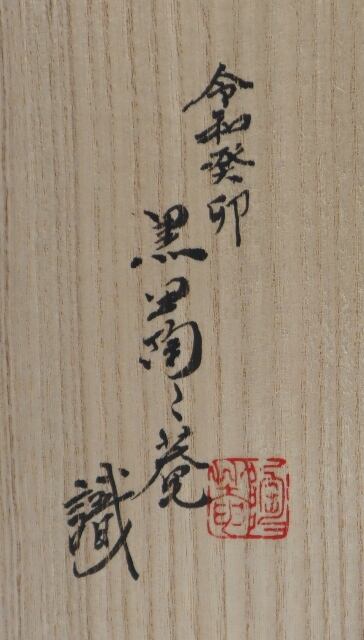 令和癸卯
黒田陶々菴
識